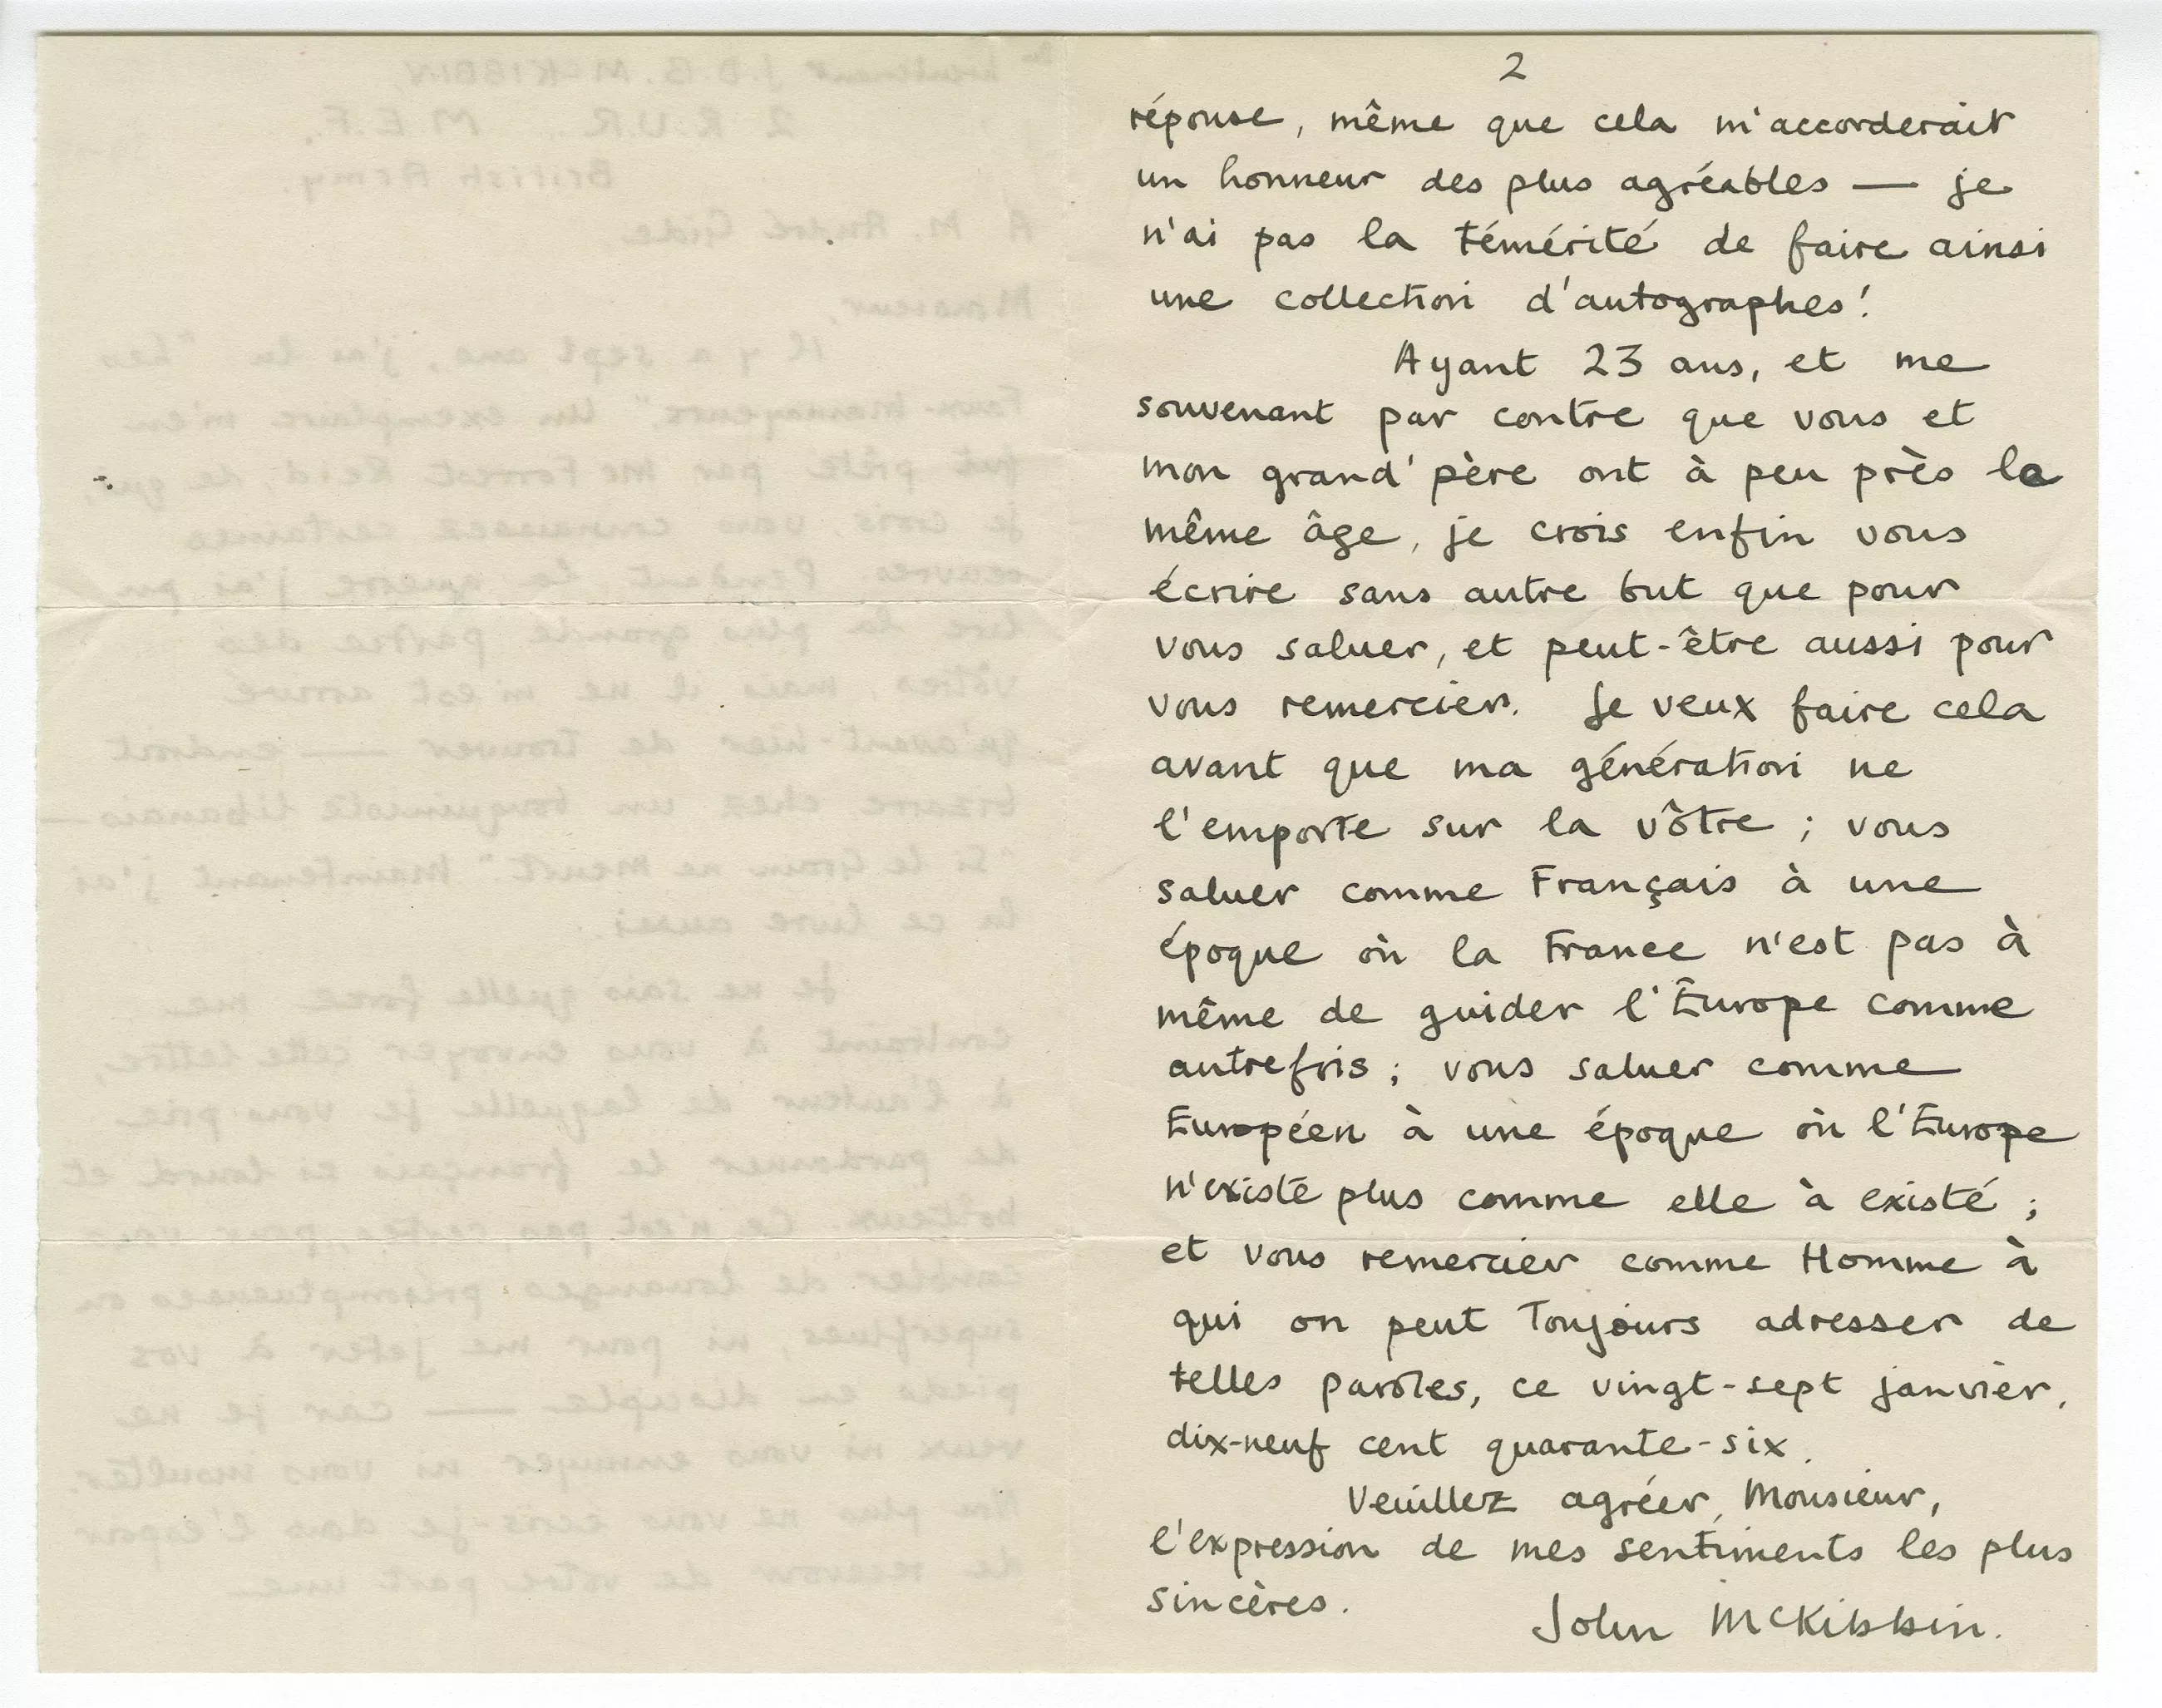 2
réponse, même que cela m'accorderait
un honneur des plus agréables — je
n'ai pas la témérité de faire ainsi
une collection d'autographes!
Ayant 23 ans, et me
souvenant par contre que vous et
mon grand'père ont à peu près le
même âge, je crois enfin vous
écrire sans autre but que pour
vous saluer, et peut-être aussi pour
vous remercier. Je veux faire cela
avant que ma génération ne
l'emporte sur la vôtre ; vous
saluer comme Français à une
époque où la France n'est pas à
même de guider l'Europe comme
autrefois ; vous saluer comme
Européen à une époque où l'Europe
n'existe plus comme elle à existé ;
et vous remercier comme Homme à
qui on peut toujours adresser de
telles paroles, ce vingt-sept janvier,
dix-neuf cent quarante-six.
Veuillez agréer, Monsieur,
l'expression de mes sentiments les plus
sincères.
John McKibbin.